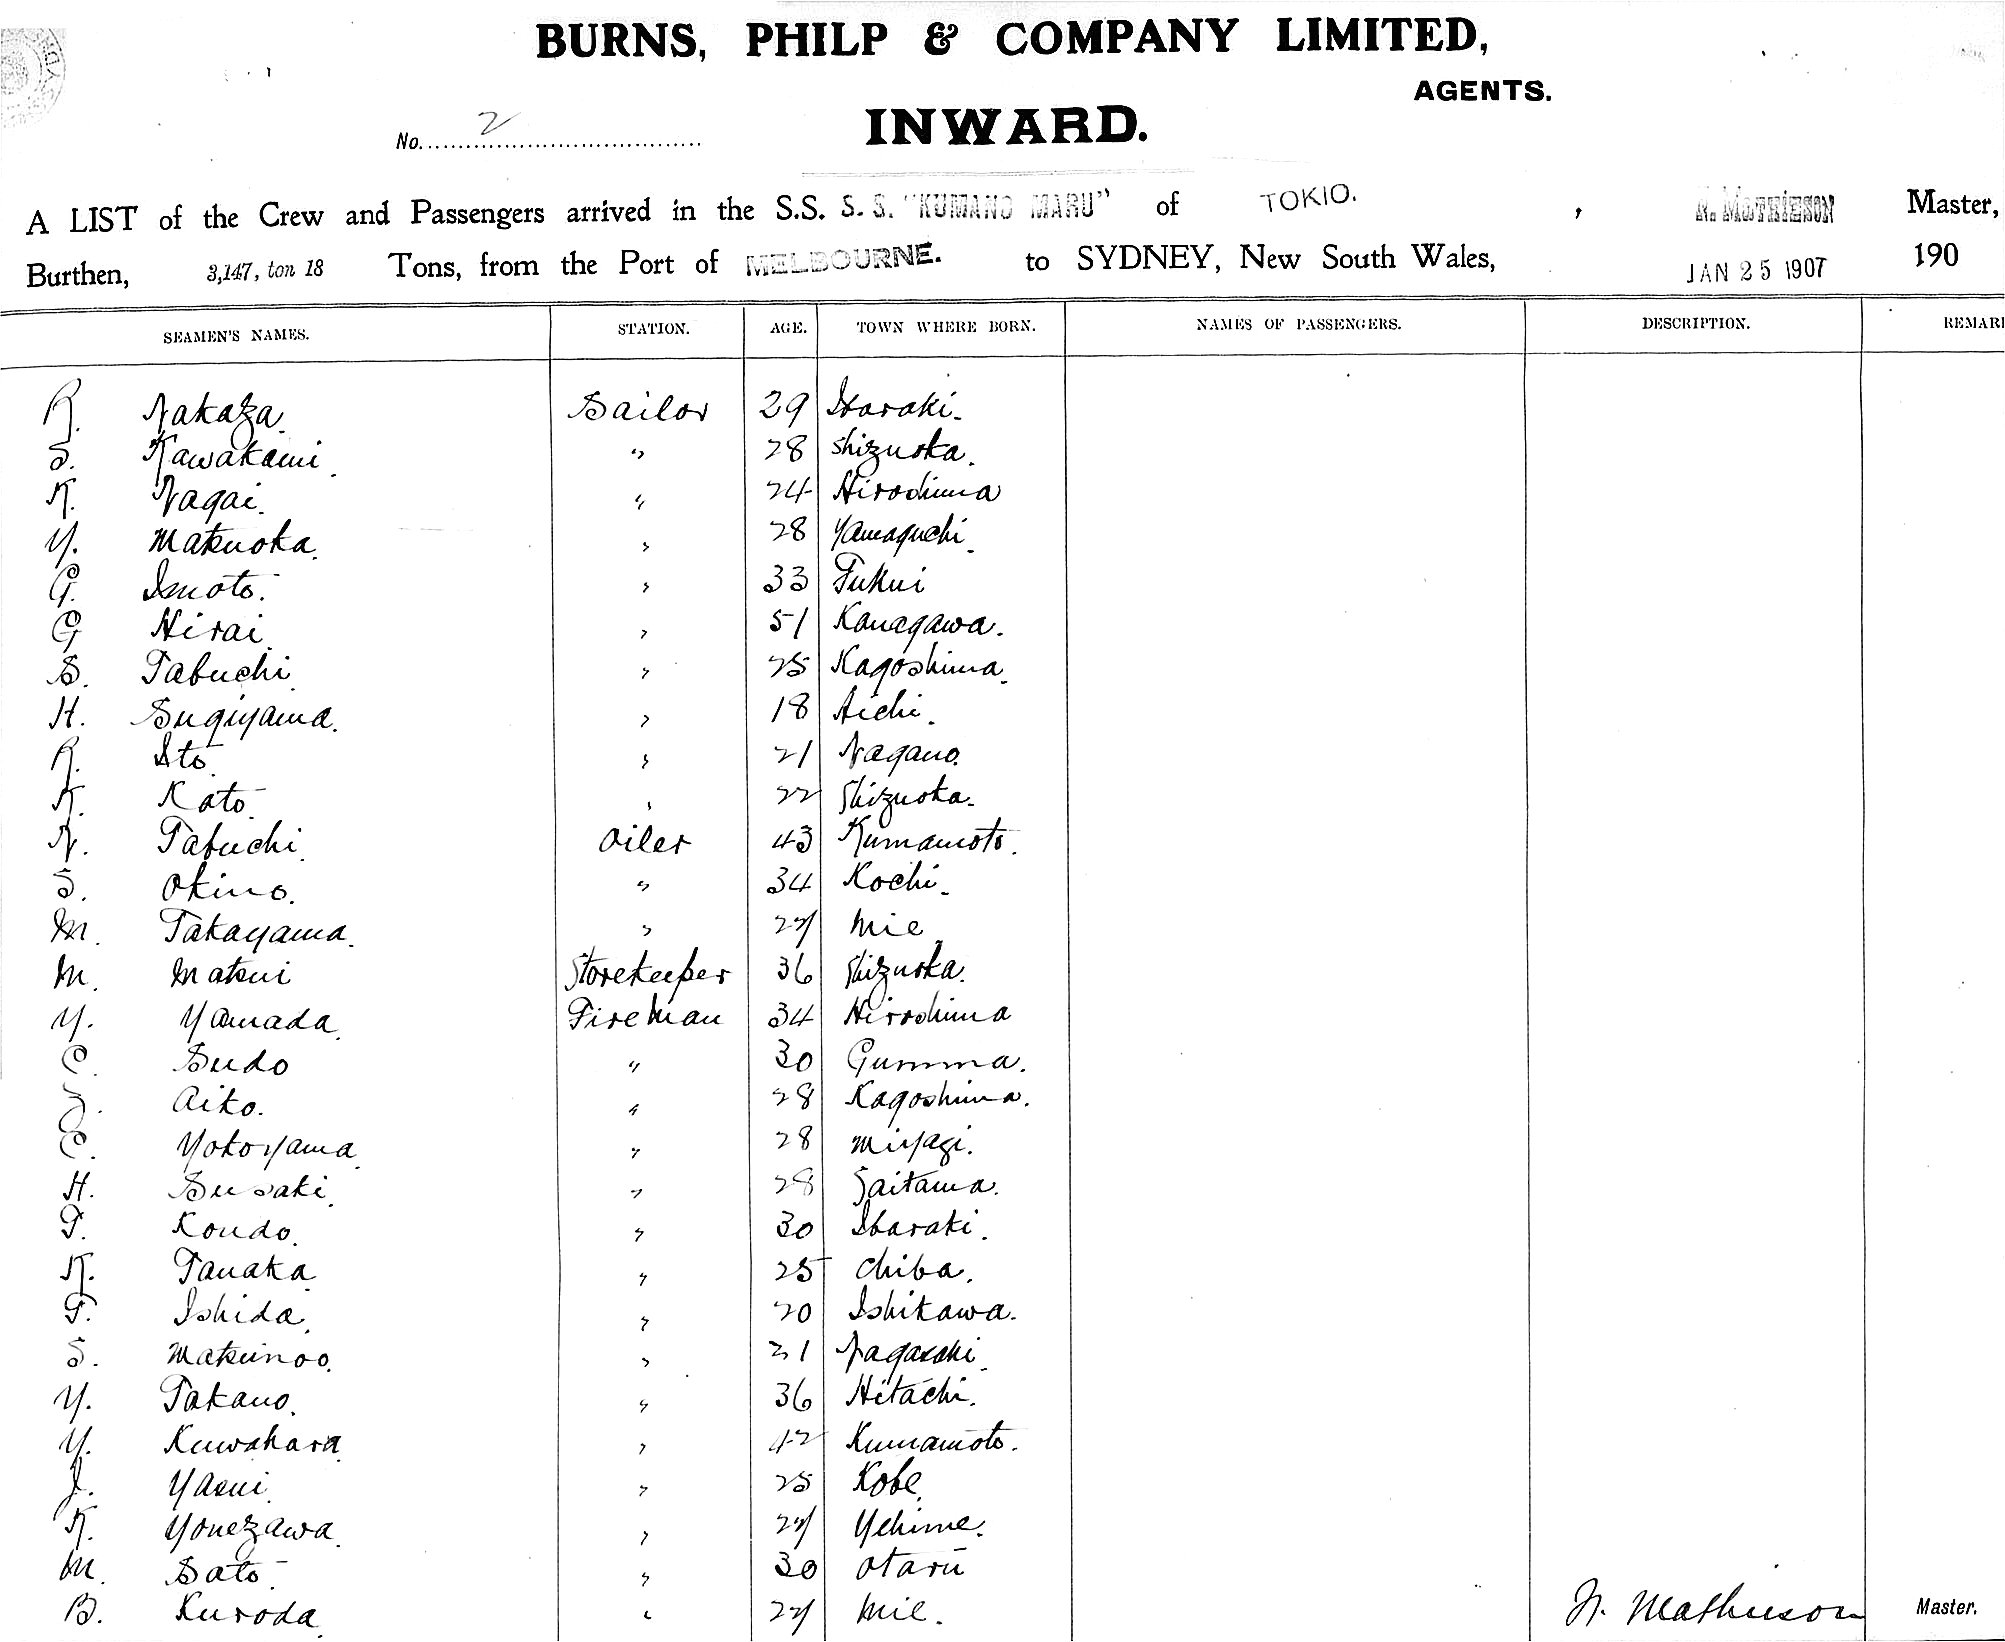 BURNS, PHILP & COMPANY LIMITED,
AGENTS.
INWARD.
No. 2
A LIST of the Crew and Passengers arrived in the S.S. S. S. "KUMANO MARU" of TOKIO. , N. MATHIESON Master,
Burthen, 3,147, ton 18 Tons, from the Port of MELBOURNE. to SYDNEY, New South Wales, JAN 25 1907 190
SEAMEN'S NAMES. STATION. AGE. TOWN WHERE BORN. NAMES OF PASSENGERS. DESCRIPTION. REMAR
R. Nakaza. Sailor 29 Ibaraki.
S. Kawakami. " 28 Shizuoka.
K. Nagai. " 24 Hiroshima
Y. Matsuoka. " 28 Yamaguchi.
G. Imoto. " 33 Fukui
G Hirai. " 51 Kanagawa.
S. Tabuchi. " 25 Kagoshima.
H. Sugiyama. " 18 Aichi.
R. Ito. " 21 Nagano.
K. Kato. " 22 Shizuoka.
N. Tabuchi. Oiler 43 Kumamoto.
S. Okino. " 34 Kochi.
M. Takayama. " 27 Mie.
M. Matsui Storekeeper 36 Shizuoka.
Y. Yamada. Fireman 34 Hiroshima
C. Sudo " 30 Gumma.
Aiko. " 28 Kagoshima.
C. Yokoyama. " 28 Miyagi.
H. Susaki. " 28 Saitama.
T. Kondo. " 30 Ibaraki.
K. Tanaka " 25 Chiba.
T. Ishida. " 20 Ishikawa.
S. Matsunoo. " 21 Nagasaki.
Y. Takano. " 36 Hitachi.
Y. Kuwahara " 42 Kumamoto.
J. Yasui. " 25 Kobe.
K. Yonezawa. " 27 Yehime.
M. Sato. " 30 Otaru
B. Kuroda. " 27 Mie.
N. Mathieson Master.